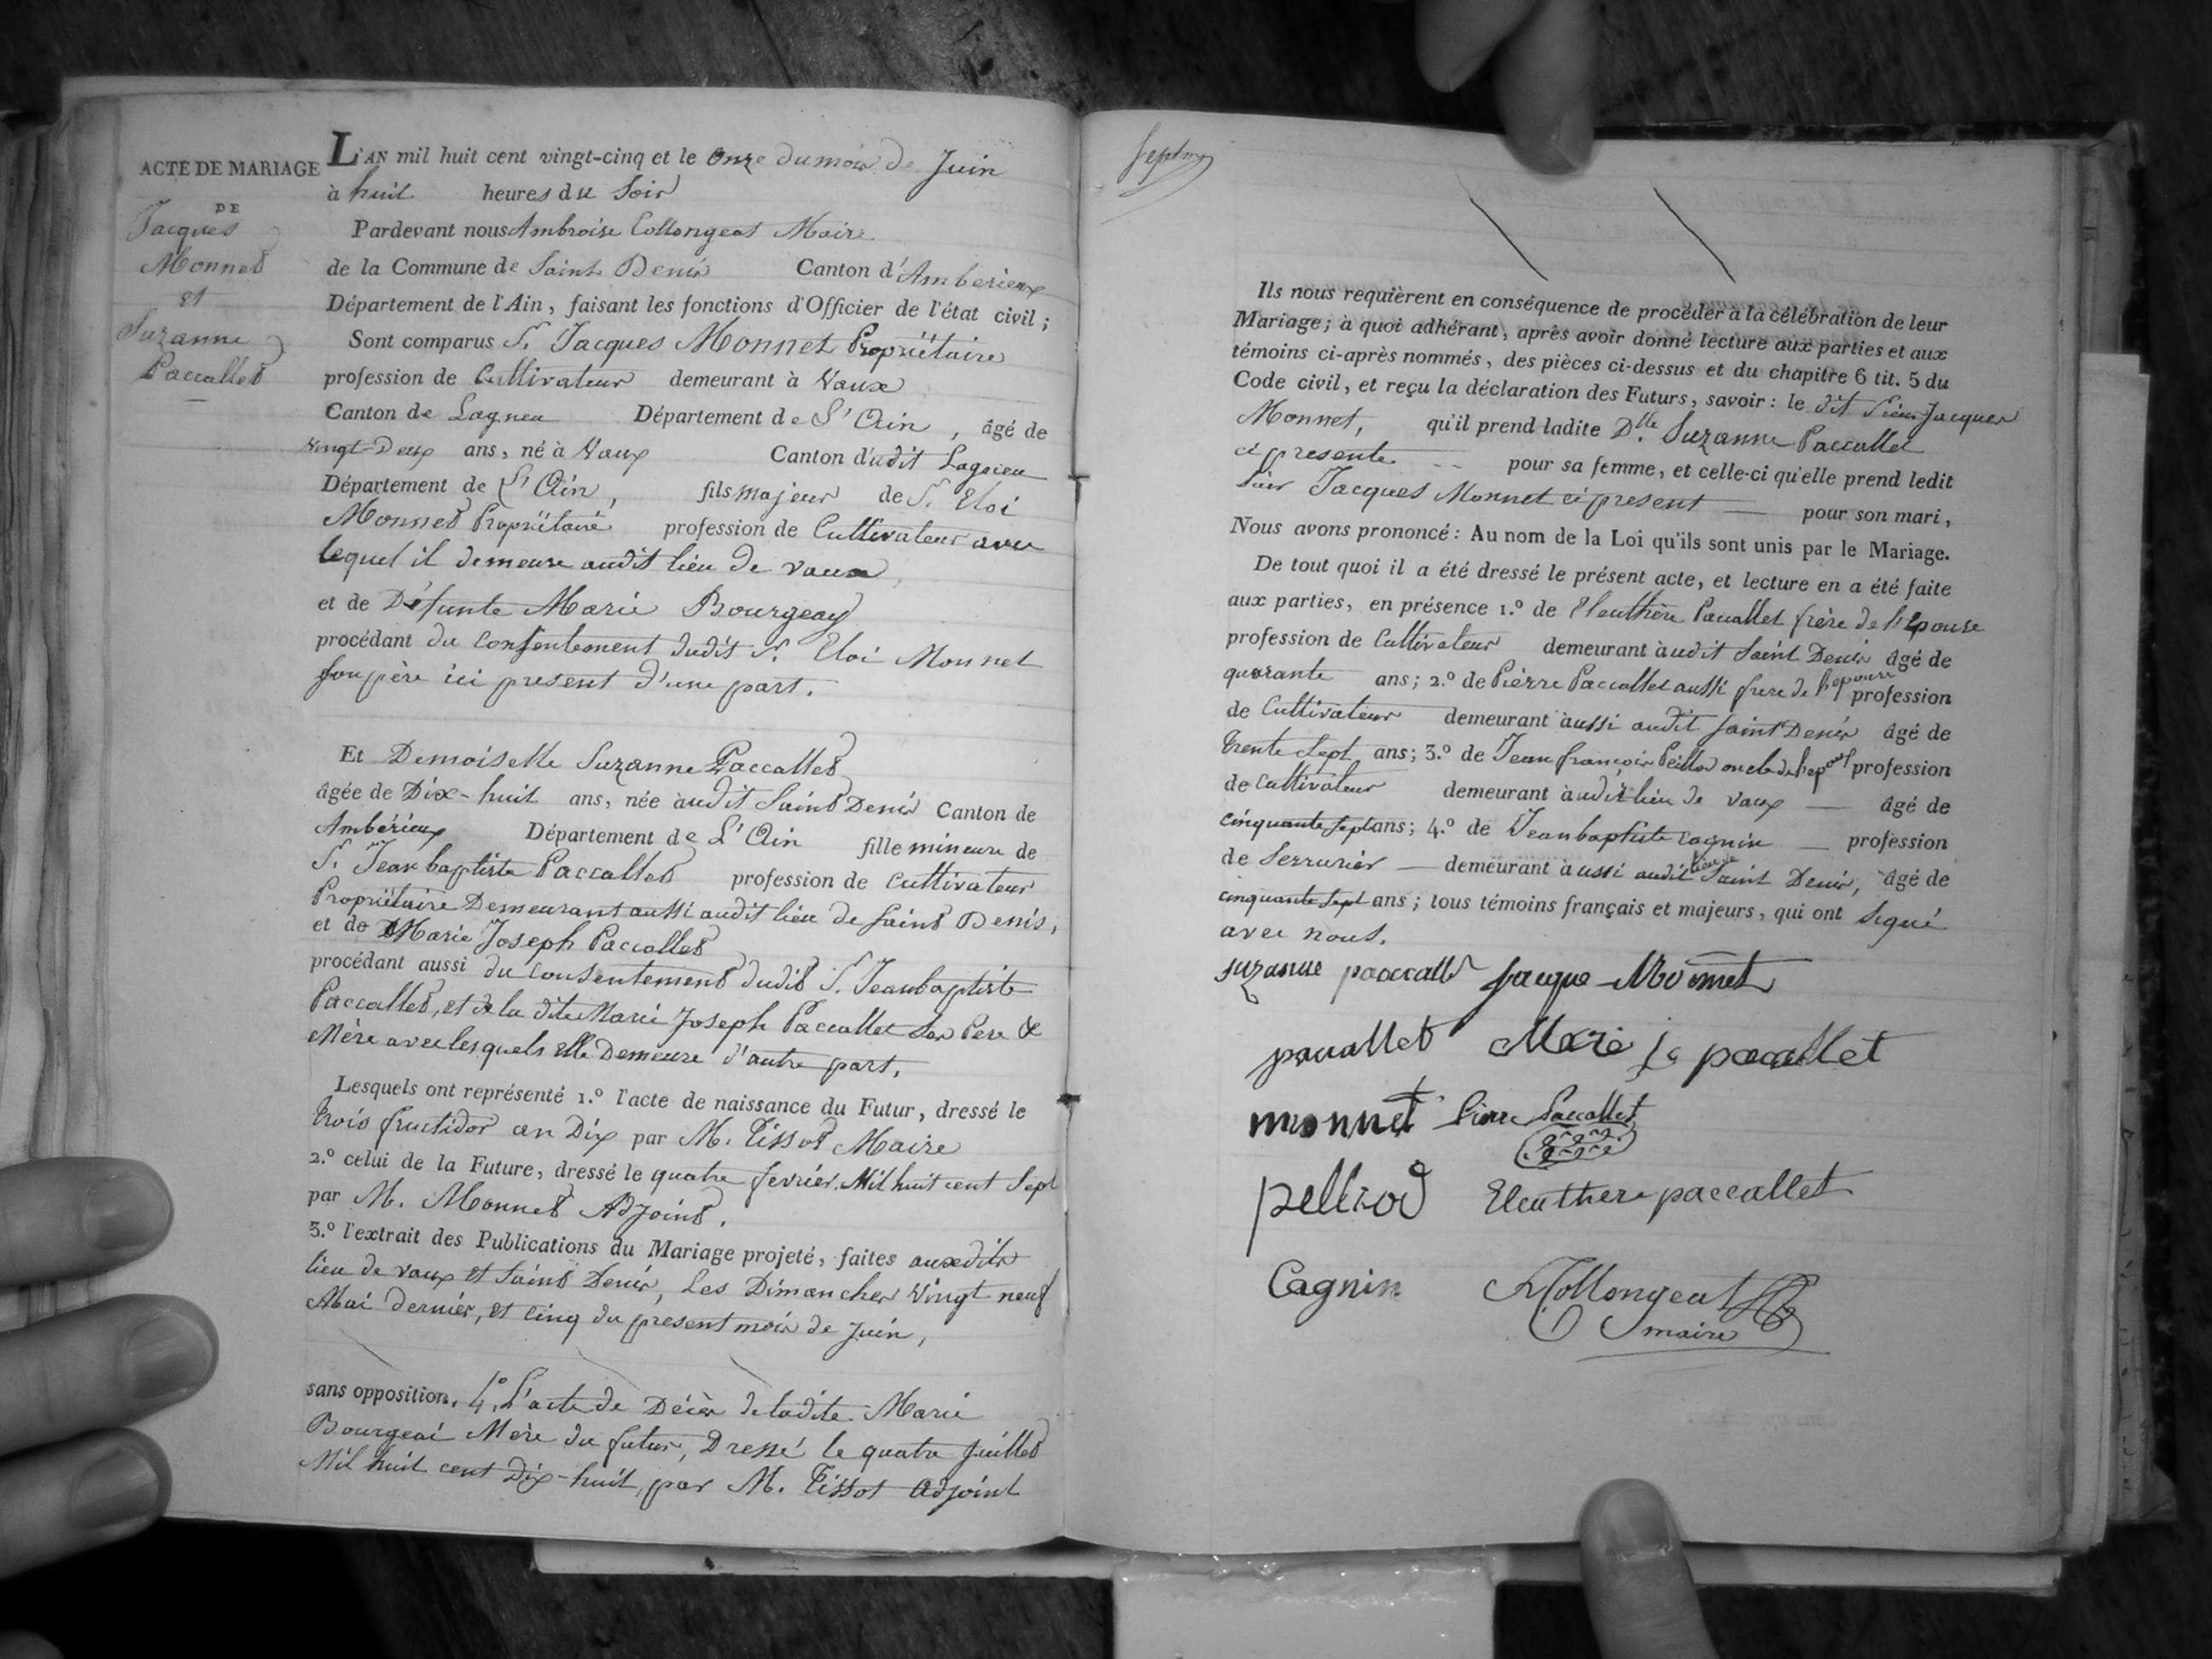 ACTE DE MARIAGE
DE
Jacques
Monnet
et
Suzanne
Paccallet
L'AN mil huit cent vingt-cinq et le Onze du mois de Juin
à huit heures du Soir
Pardevant nous Ambroise Collongeat Maire
de la Commune de Saint Denis Canton d'Amberieux
Département de l'Ain, faisant les fonctions d'Officier de l'état civil;
Sont comparus S. Jacques Monnet Propriétaire
profession de Cultivateur demeurant à Vaux
Canton de Lagneu Département de L'Ain, âgé de
vingt-Deux ans, né à Vaux Canton dudit Lagnieu
Département de L'Ain, fils majeur de S. Eloi
Monnet Propriétaire profession de Cultivateur avec
lequel il demeure audit lieu de vaux,
et de Défunte Marie Bourgeay
procédant du Consentement dudit S. Eloi Monnet
son père ici present d'une part.
Et Demoiselle Suzanne Paccallet
âgée de Dix-huit ans, née audit Saint Denis Canton de
Ambérieux Département de L'Ain fille mineure de
S. Jean baptiste Paccallet profession de Cultivateur
Propriétaire Demeurant aussi audit lieu de Saint Denis,
et de Marie Joseph Paccallet
procédant aussi du Consentement dudit S. Jean baptiste
Paccallet, et de la dite Marie Joseph Paccallet Ses Pere &
Mère avec lesquels elle Demeure d'autre part.
Lesquels ont représenté 1.º l'acte de naissance du Futur, dressé le
trois fructidor an Dix par M. Tissot Maire
2.º celui de la Future, dressé le quatre fevrier Mil huit cent Sept
par M. Monnet Adjoint.
3.º l'extrait des Publications du Mariage projeté, faites auxdits
lieu de vaux et Saint Denis, Les Dimanches Vingt neuf
Mai dernier, et cinq du present mois de Juin,
sans opposition. 4.º L'acte de Décès de ladite Marie
Bourgeai Mère du futur, Dressé le quatre Juillet
Mil huit cent Dix-huit, par M. Tissot Adjoint
Ils nous requièrent en conséquence de procéder à la célébration de leur
Mariage; à quoi adhérant, après avoir donné lecture aux parties et aux
témoins ci-après nommés, des pièces ci-dessus et du chapitre 6 tit. 5 du
Code civil, et reçu la déclaration des Futurs, savoir: le dit Sieur Jacques
Monnet, qu'il prend ladite D.lle Suzanne Paccallet
ci presente pour sa femme, et celle-ci qu'elle prend ledit
Sieur Jacques Monnet ci present pour son mari,
Nous avons prononcé: Au nom de la Loi qu'ils sont unis par le Mariage.
De tout quoi il a été dressé le présent acte, et lecture en a été faite
aux parties, en présence 1.º de Eleuthère Paccallet frère de l'epouse
profession de Cultivateur demeurant audit Saint Denis âgé de
quarante ans; 2.º de Pierre Paccallet aussi frere de l'epouse profession
de Cultivateur demeurant aussi audit Saint Denis âgé de
trente Sept ans; 3.º de Jean françois Peillod oncle de l'epoux profession
de Cultivateur demeurant audit lieu de vaux âgé de
cinquante sept ans; 4.º de Jean baptiste Cagnin profession
de Serrurier demeurant aussi audit lieu de Saint Denis, âgé de
cinquante Sept ans; tous témoins français et majeurs, qui ont Signé
avec nous.
suzanne paccallet Jacque Monnet
paccallet Marie J paccallet
monnet Pierre Paccallet
pelliod Eleuthere paccallet
Cagnin Collongeat
maire